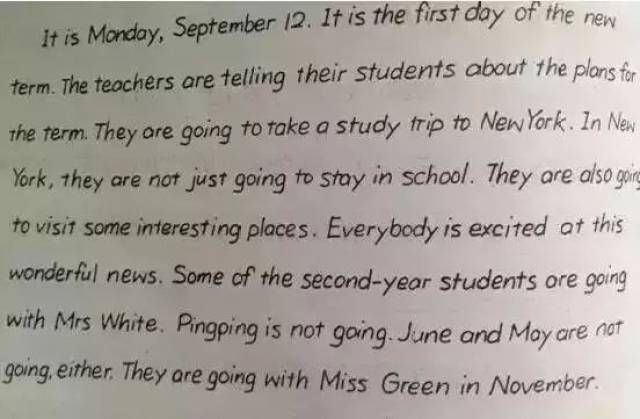 It is Monday, September 12. It is the first day of the new
term. The teachers are telling their students about the plans for
the term. They are going to take a study trip to New York. In New
York, they are not just going to stay in school. They are also going
to visit some interesting places. Everybody is excited at this
wonderful news. Some of the second-year students are going
with Mrs White. Pingping is not going. June and May are not
going, either. They are going with Miss Green in November.